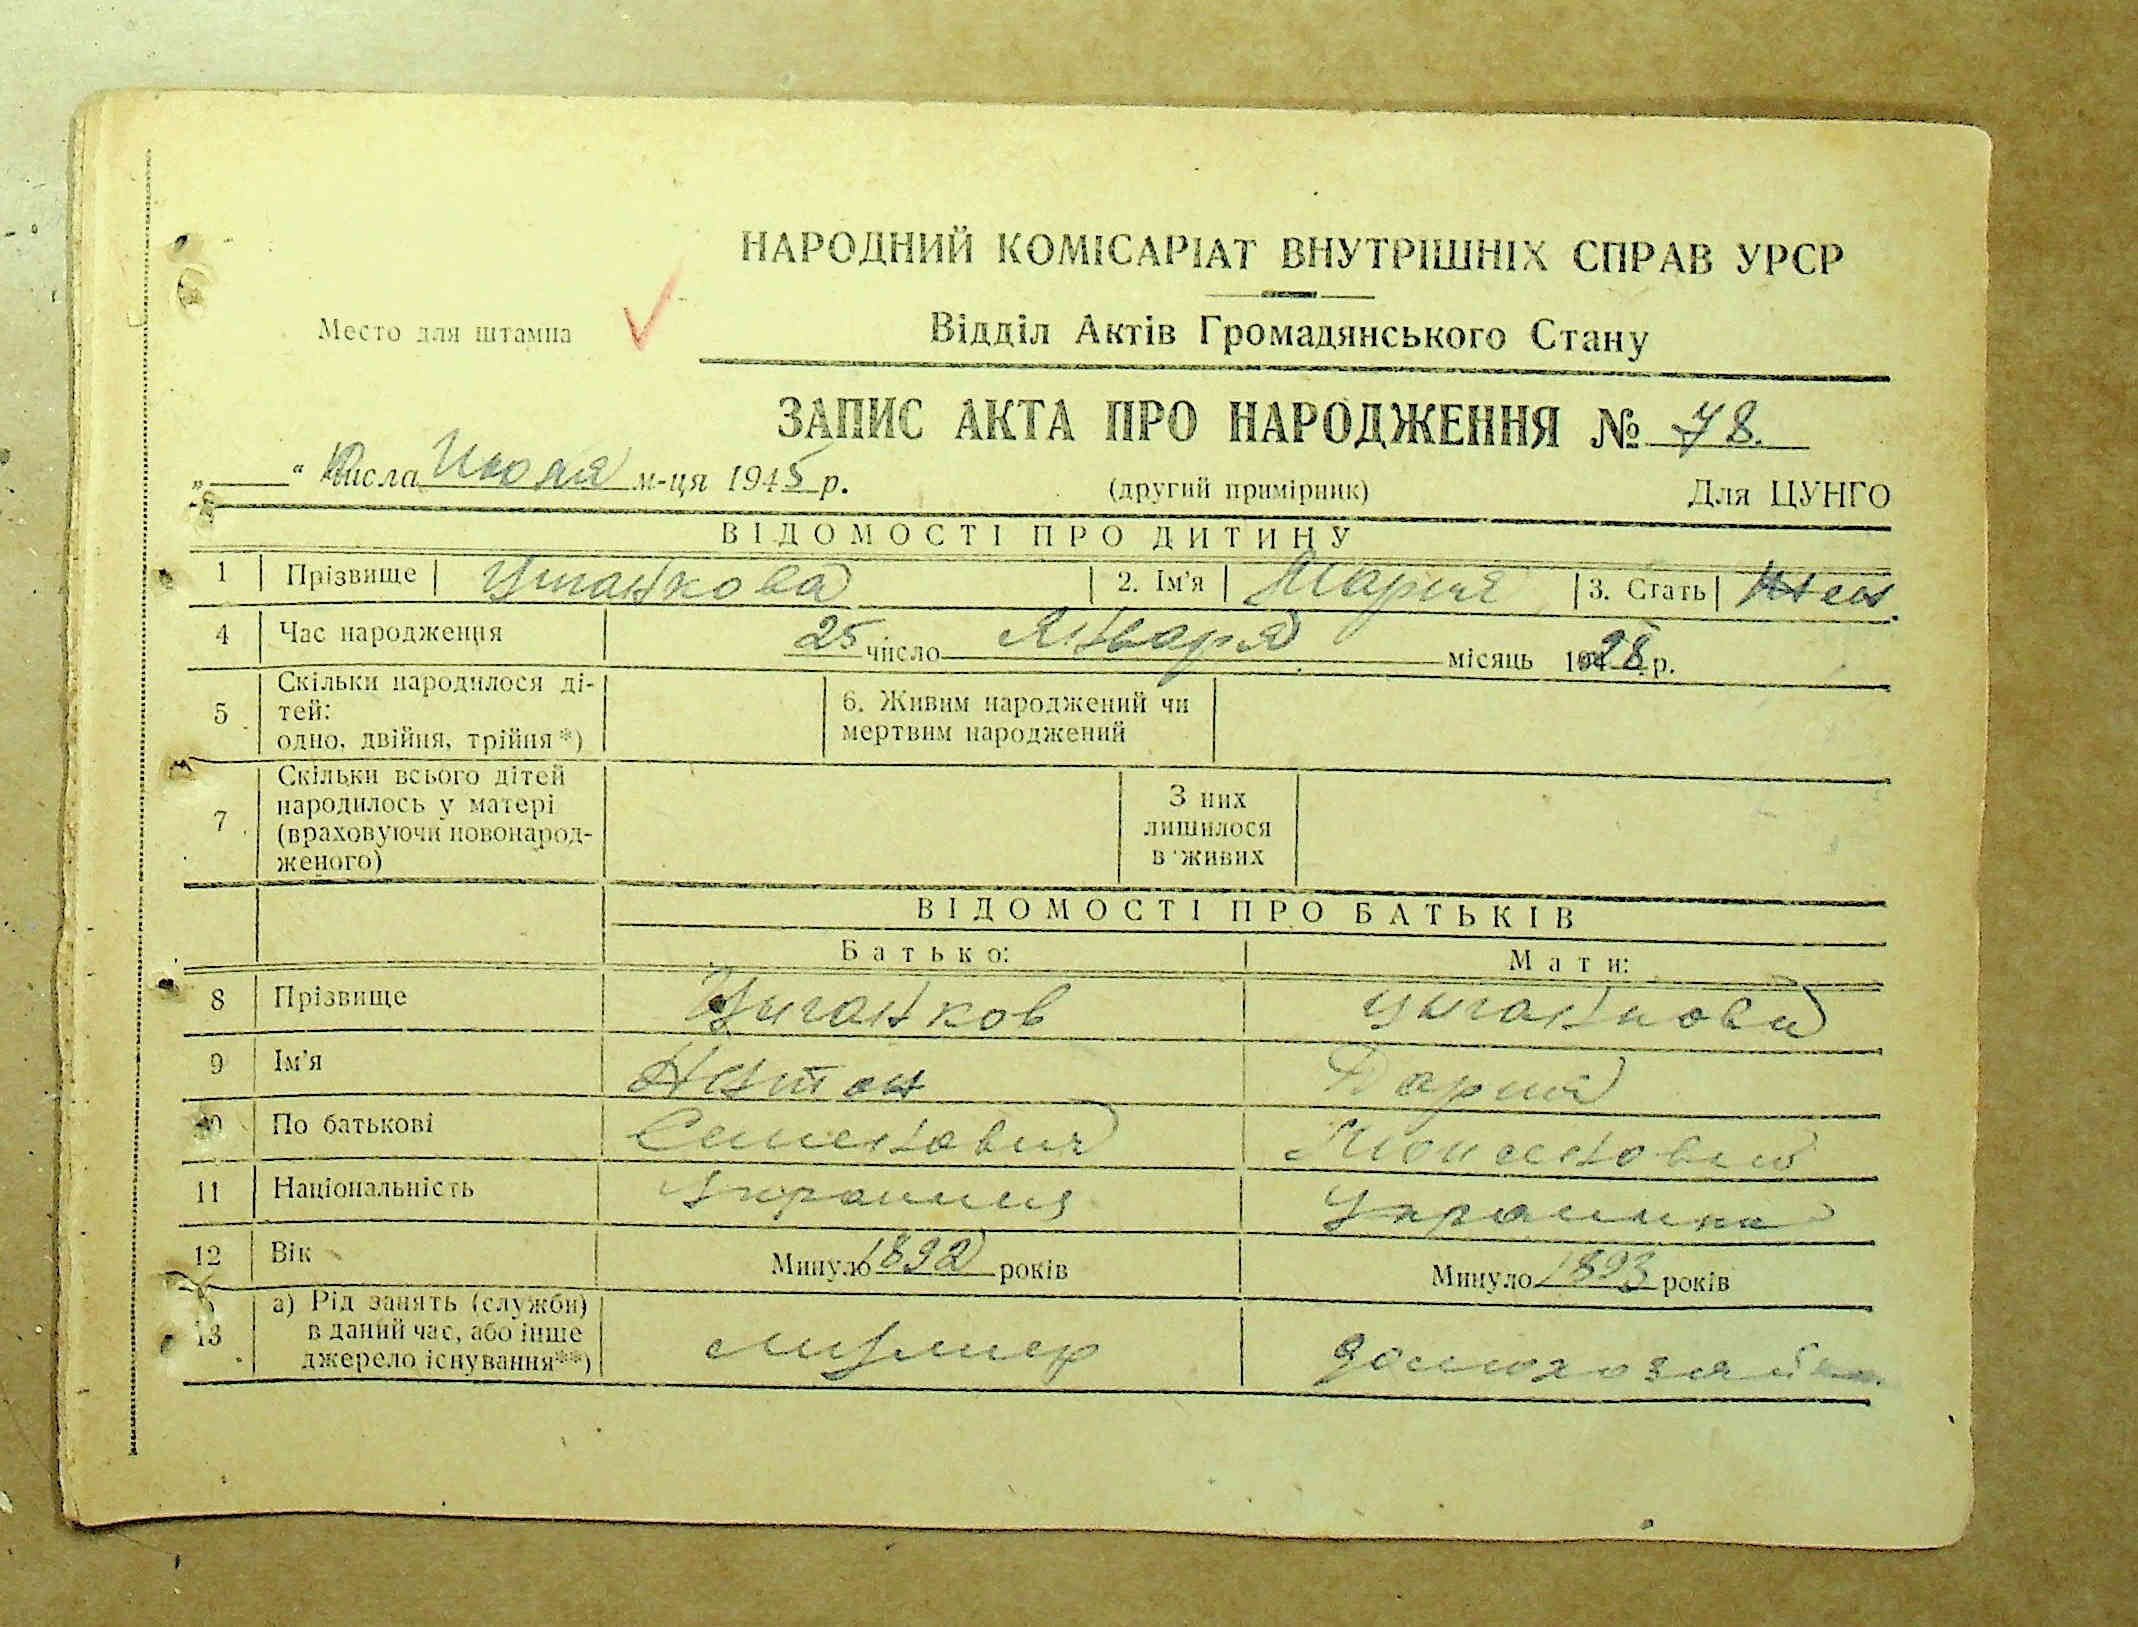 НАРОДНИЙ КОМІСАРІАТ ВНУТРІШНІХ СПРАВ УРСР
Место для штампа
Відділ Актів Громадянського Стану
ЗАПИС АКТА ПРО НАРОДЖЕННЯ № 78.
„ “ Числа м-ця 1945 р. (другий примірник) Для ЦУНГО
ВІДОМОСТІ ПРО ДИТИНУ
1 Прізвище 2. Ім'я Мария 3. Стать жен.
4 Час народження 25 число Января місяць 1928 р.
5 Скільки народилося ді-
тей:
одно, двійня, трійня *)
6. Живим народжений чи
мертвим народжений
7 Скільки всього дітей
народилось у матері
(враховуючи новонарод-
женого)
З них
лишилося
в живих
ВІДОМОСТІ ПРО БАТЬКІВ
Батько: Мати:
8 Прізвище Цыганков Цыганкова
9 Ім'я Антон Дария
10 По батькові Семенович
11 Національність Украинец Украинка
12 Вік Минуло 1892 років Минуло 1893 років
13 а) Рід занять (служби)
в даний час, або інше
джерело існування**)
домохозяйка.